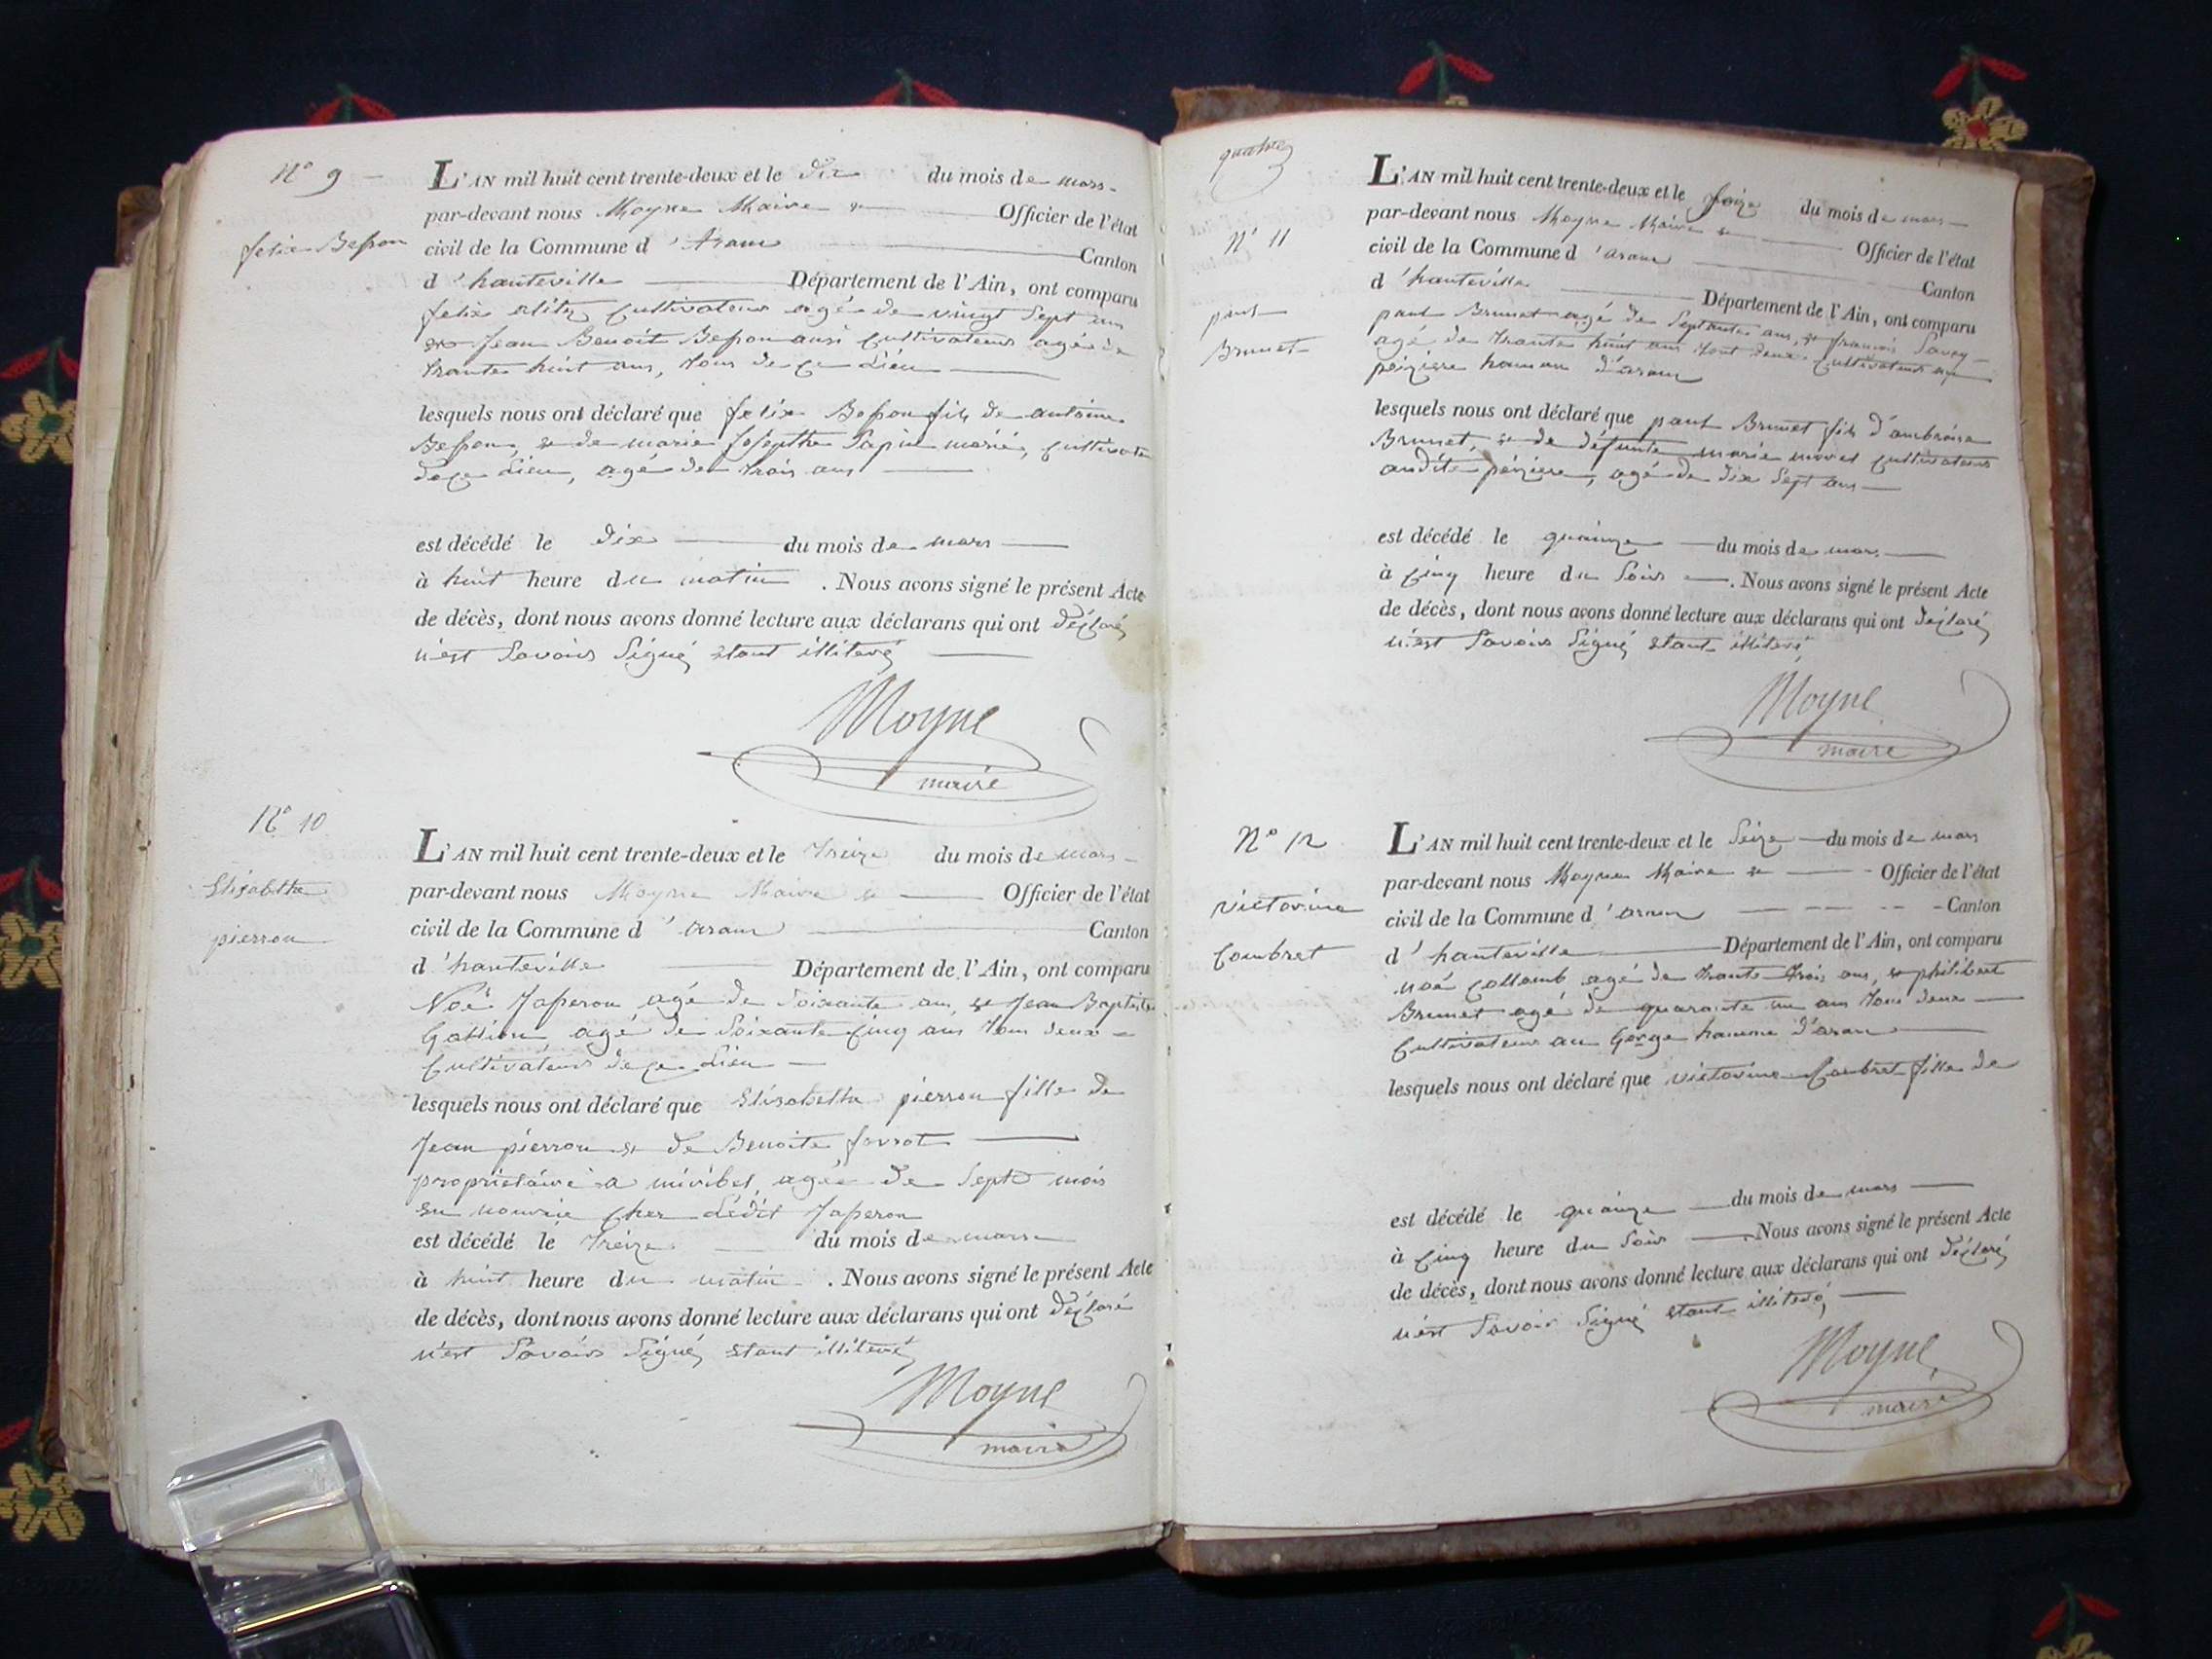 N° 9
felix Besson
L'AN mil huit cent trente-deux et le dix du mois de mars
par-devant nous Moyne Maire Officier de l'état
civil de la Commune d' Aranc Canton
d' hauteville Département de l'Ain, ont comparu
felix cultivateur agé de vingt sept ans
Jean Benoit Besson ausi cultivateur agé de
trante huit ans, tous de ce Lieu
lesquels nous ont déclaré que felix Besson fils de antoine
Besson, de marie Josepthe Papin mariés, cultivate
de ce Lieu, agé de trois ans
est décédé le dix du mois de mars
à huit heure du matin . Nous avons signé le présent Acte
de décès, dont nous avons donné lecture aux déclarans qui ont déclaré
n'est Savoir Signé étant illiteré
Moyne
maire
N° 10
Elisabetha
pierron
L'AN mil huit cent trente-deux et le treize du mois de mars
par-devant nous Moyne Maire Officier de l'état
civil de la Commune d' aranc Canton
d' hauteville Département de l'Ain, ont comparu
Noé Japeron agé de Soixante ans, et Jean Baptiste
agé de Soixante cinq ans tous deux
cultivateurs de ce Lieu
lesquels nous ont déclaré que Elisabetha pierron fille de
Jean pierron et de Benoite favrot
proprietaire a miribel, agée de Sept mois
en nourrice cher Ledit Japeron
est décédé le treize du mois de mars
à huit heure du matin . Nous avons signé le présent Acte
de décès, dont nous avons donné lecture aux déclarans qui ont déclaré
n'est Savoir Signé étant illiteré
Moyne
maire
quatre
N° 11
paul
Brunet
L'AN mil huit cent trente-deux et le Seize du mois de mars
par-devant nous Moyne Maire Officier de l'état
civil de la Commune d' aranc Canton
d' hauteville Département de l'Ain, ont comparu
paul Brunet agé de Septante ans, et francois Savey
agé de trante huit ans tout deux cultivateurs au
péziere hamau d'aranc
lesquels nous ont déclaré que paul Brunet fils d'ambroise
Brunet, et de défunte marie morel cultivateurs
audite pézieres, agé de dix Sept ans
est décédé le quainze du mois de mars
à cinq heure du Soir . Nous avons signé le présent Acte
de décès, dont nous avons donné lecture aux déclarans qui ont déclaré
n'est Savoir Signé étant illiteré
Moyne
maire
N° 12
victorine
Combret
L'AN mil huit cent trente-deux et le Seize du mois de mars
par-devant nous Moyne Maire Officier de l'état
civil de la Commune d' aranc Canton
d' hauteville Département de l'Ain, ont comparu
noé collomb agé de trante trois ans, et philibert
Brunet agé de quarante un ans tous deux
Cultivateurs au Gorge hamme d'aranc
lesquels nous ont déclaré que victorine Combret fille de
est décédé le quainze du mois de mars
à cinq heure du Soir . Nous avons signé le présent Acte
de décès, dont nous avons donné lecture aux déclarans qui ont déclaré
n'est Savoir Signé étant illiteré
Moyne
maire